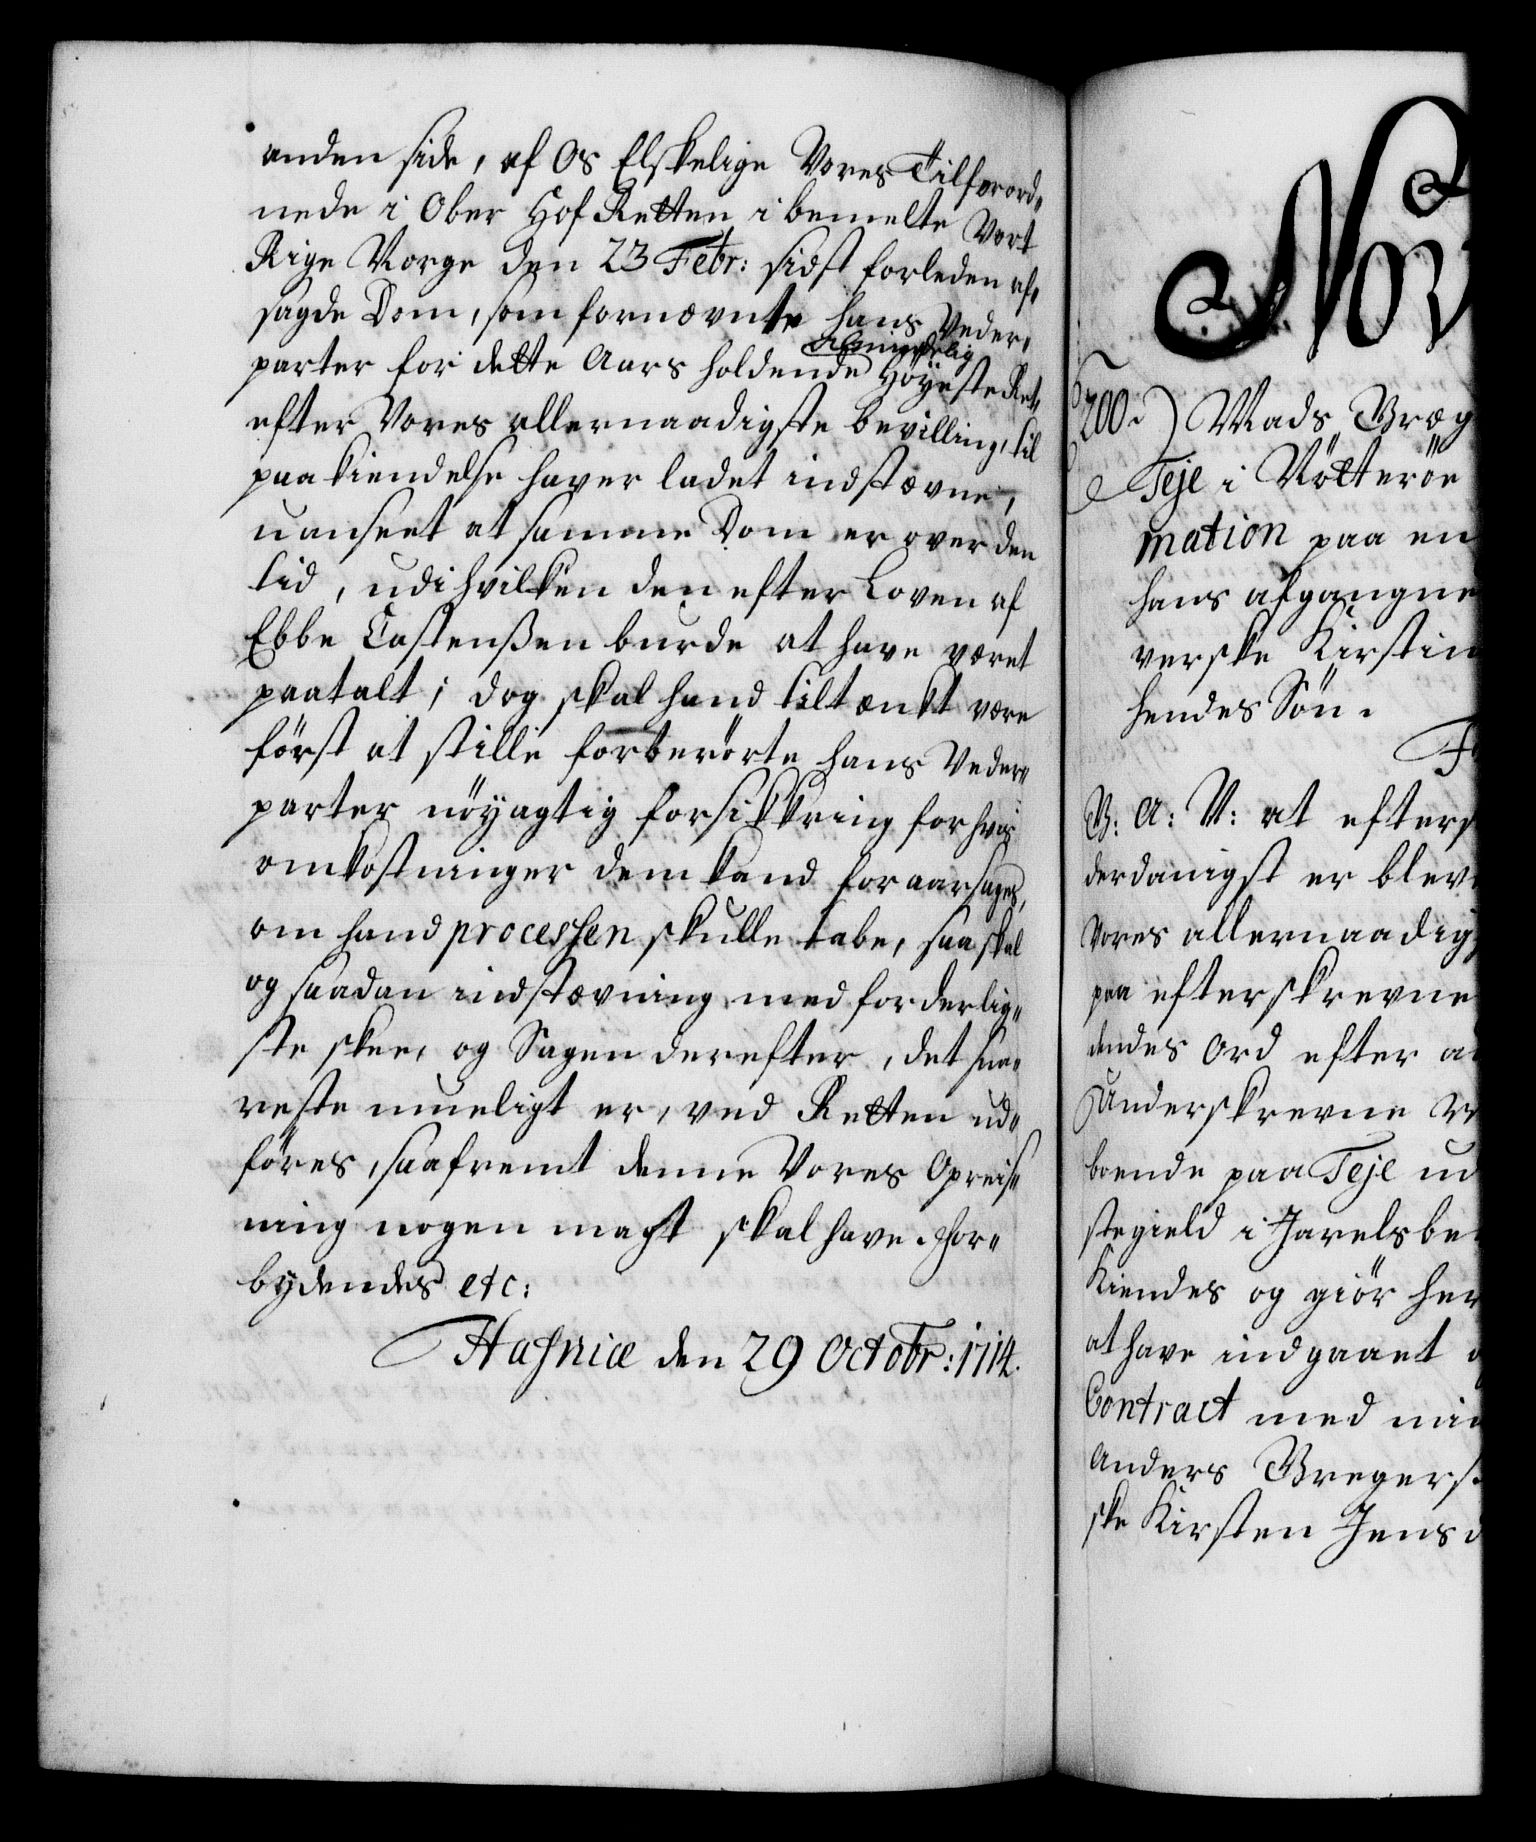 anden side, af Os Elskelige Vores Tilforord-
nede i Ober Hof Retten i bemelte Vort
Rige Norge den 23 Febr: sidst forleden af-
sagde Dom, som fornævnte hans Veder-
parter for dette Aars holdende Almindelig Höyeste Ret,
efter Vores allernaadigste bevilling, til
paakiendelse haver ladet indstævne,
uanseet at samme Dom er over den
tid, udi hvilken den efter Loven af
Ebbe Castenßen burde at have været
paatalt; dog skal hand tiltænkt være
först at stille forberörte hans Veder-
parter nöyagtig forsikkring for hvis
omkostninger dem kand foraarsages,
om hand processen skulle tabe, saa skal
og saadan indstævning med forderlig-
ste skee, og Sagen derefter, det sna-
reste mueligt er, ved Retten ud-
föres, saafremt denne Vores Opreis-
ning nogen magt skal have. Hor-
bydendes etc:
Hafniæ den 29 Octobr: 1714.
Nov
200.) Mads Bræg
Teje i Nötteröe
mation paa en
hans afgangne
verske Kirstin
hendes Sön.
F
V: A: V: at efters
derdanigst er blev
Vores allernaadig
paa efterskrevne
dendes Ord efter a
Underskrevne
boende paa Teje ud
stegield i Jarelsbe
Kiendes og giör her
at have indgaaet
Contract med min
Anders Bregers
ske Kirsten Jens d